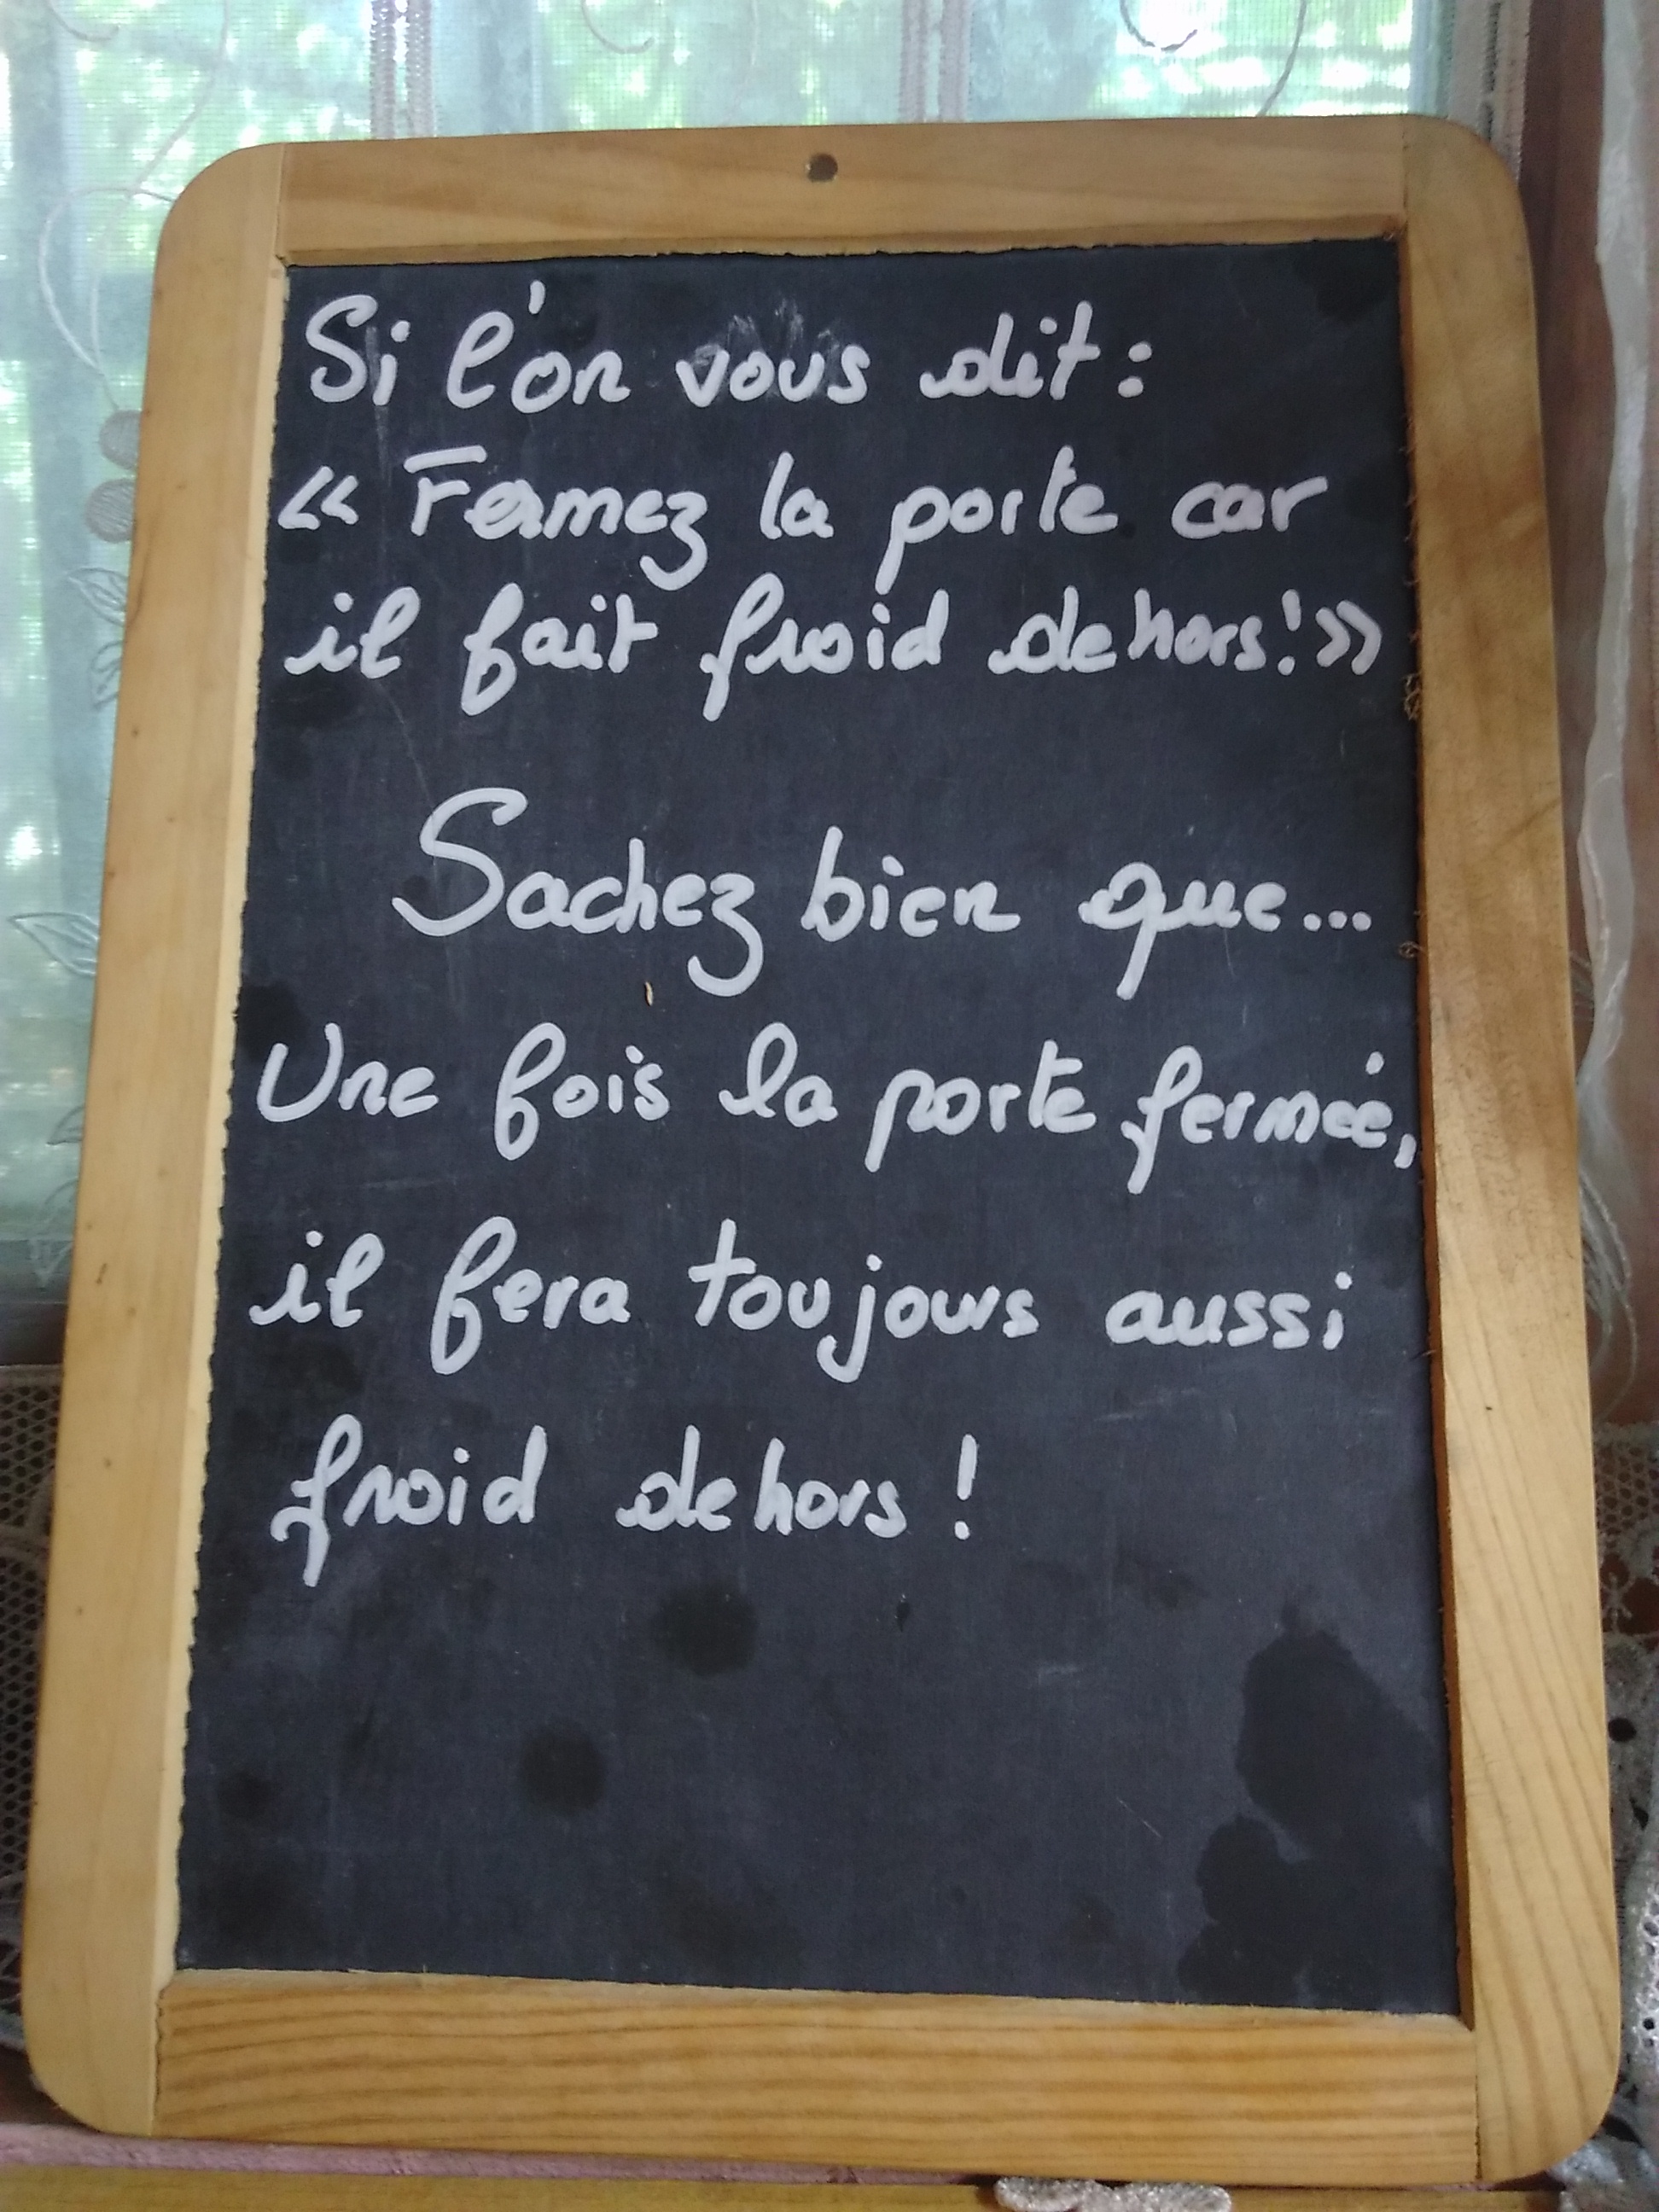 Si l'on vous dit :
« Fermez la porte car
il fait froid dehors! »
Sachez bien que...
Une fois la porte fermée,
il fera toujours aussi
froid dehors !